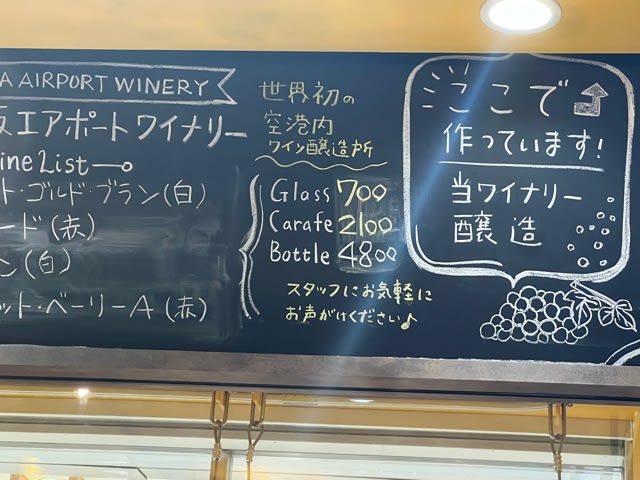 A AIRPORT WINERY
阪エアポートワイナリー
ine List
ト・ゴルド・ブラン(白)
ード(赤)
ン(白)
ット・ベーリーA(赤)
世界初の
空港内
ワイン醸造所
Glass 700
Carafe 2100
Bottle 4800
スタッフにお気軽に
お声がけください♪
ここで
作っています!
当ワイナリー
醸造